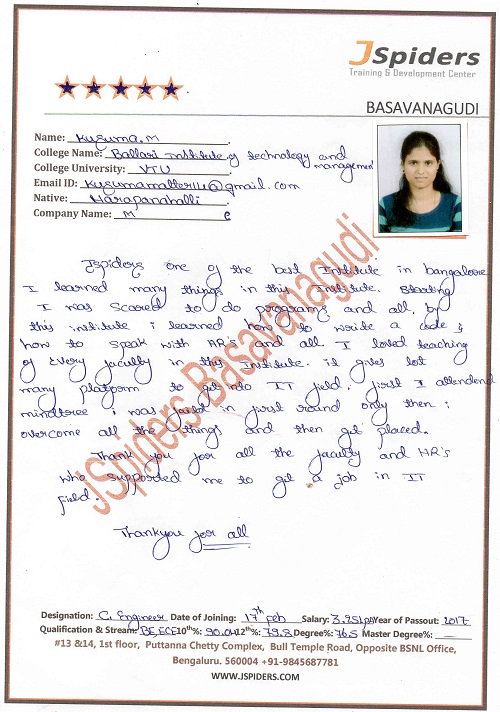 JSpiders
Training & Development Center
BASAVANAGUDI
Name: Kusuma.M
College Name: Ballari Institute of technology and management
College University: VTU
Email ID: @gmail.com
Native: Harapanahalli
Company Name: M e
Jspiders one of the best Institute in bangalore
I learned many things in this Institute. Starting
I was scared to do programs and all, by
this institute i learned how to write a code &
how to speak with HR's and all. I loved teaching
of Every faculty in this Institute. it gives lot
many platform to get into IT field. first I attendend
mindtree i was faild in first round only then i
overcome all the things and then get placed.
Thank you for all the faculty and HR's
who supported me to get a job in IT
field.
Thankyou for all
JSpiders-Basavanagudi
Designation: C. Engineer Date of Joining: 17th feb Salary: 3.25 Lpa Year of Passout: 2017
Qualification & Stream: BE, ECE 10th%: 90.04 12th%: 79.3 Degree%: 76.5 Master Degree%: —
#13 &14, 1st floor, Puttanna Chetty Complex, Bull Temple Road, Opposite BSNL Office,
Bengaluru. 560004 +91-9845687781
WWW.JSPIDERS.COM